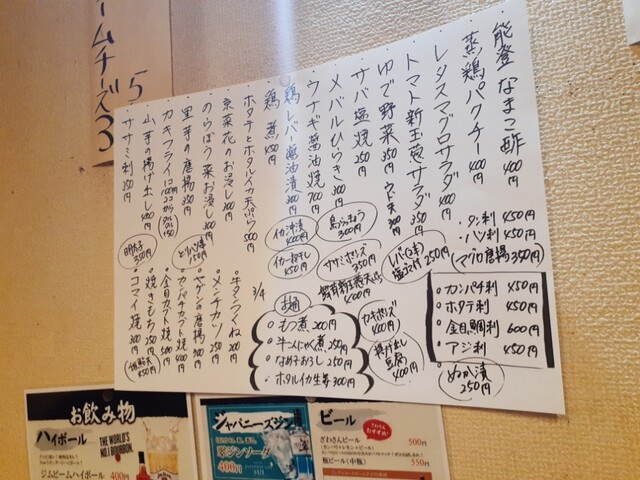 能登なまこ酢 400円
蒸鶏パクチー 400円
レタスマグロサラダ 400円
トマト新玉葱サラダ 350円
ゆで野菜 350円
ウド天 300円
サバ塩焼 250円
メバルひらき 300円
ウナギ醤油焼 700円
鶏レバー醤油漬 300円
鶏煮 450円
ホタテとホタルイカ天ぷら 500円
京菜花のお浸し 200円
のらぼう菜お浸し 300円
里芋の唐揚 350円
カキフライ
山芋の揚げ出し 400円
ササミ刺 350円
・タン刺 450円
・ハツ刺 450円
マグロ唐揚 350円
レバ
250円
島らっきょう 300円
ササミポンズ 350円
400円
イカ沖漬 400円
イカ一夜干し 450円
とりハム 150円
明太子 350円
・カンパチ刺 450円
・ホタテ刺 450円
・金目鯛刺 600円
・アジ刺 450円
ぬか漬 250円
カキポンズ 400円
揚げ出し豆腐 400円
3/4
お通
・もつ煮 200円
・牛こんにゃく煮 250円
・なめ茸おろし 250円
・ホタルイカ生姜 300円
・牛タンつくね 200円
・メンチカツ 250円
・サケの唐揚 300円
・カンパチカブト焼 400円
・金目カブト焼 500円
・焼きもち 250円
・コマイ焼 300円
450円
ームチーズ
5
3
お飲み物
ハイボール
THE WORLD'S
NO.1 BOURBON.
ジムビームハイボール 400円
ジャパニーズジン
翠ジンソーダ
400円
ビール
ざわさんビール 500円
瓶ビール（中瓶） 550円